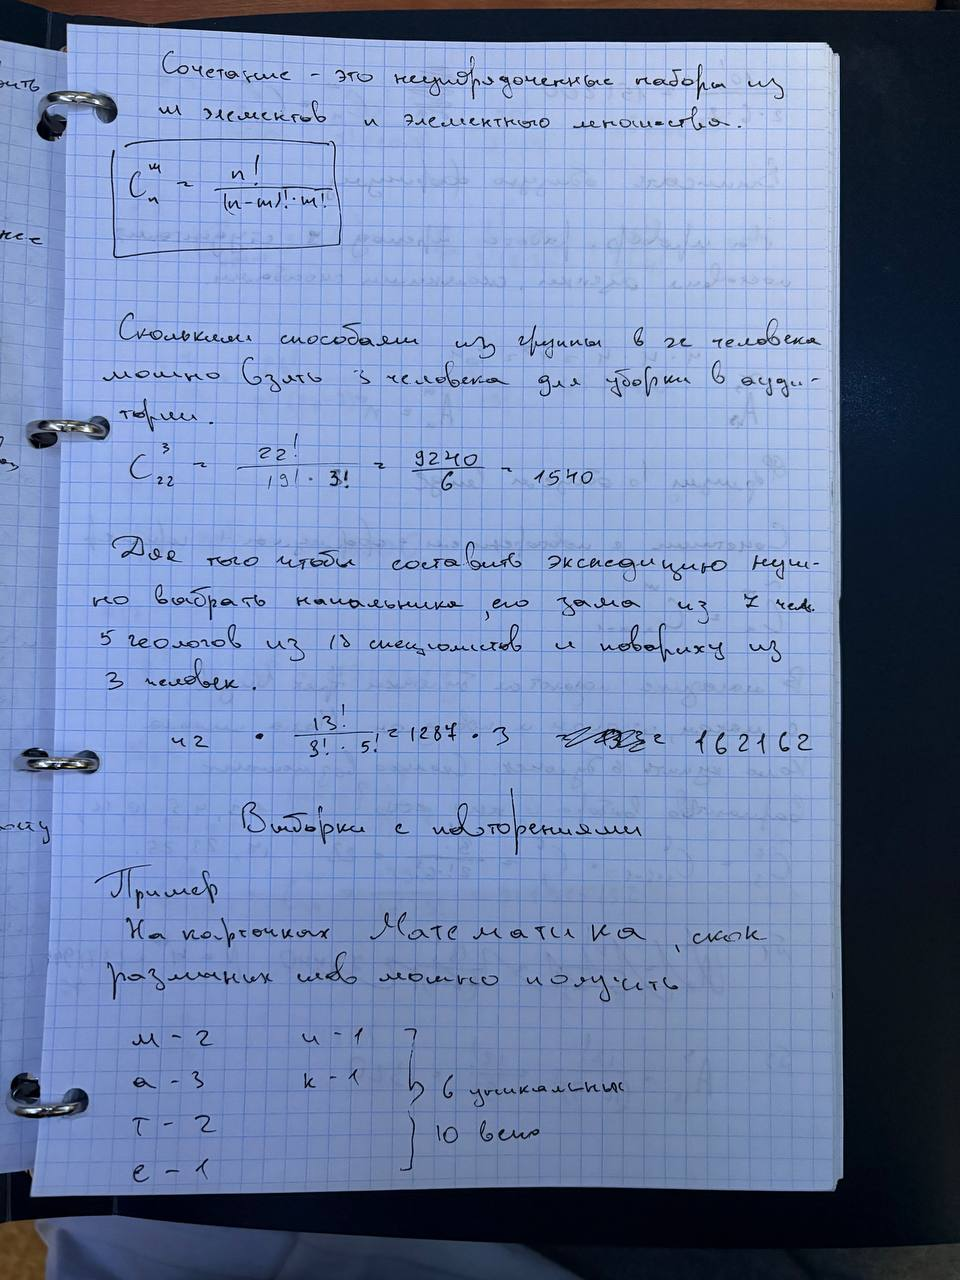 Сочетание - это неупорядоченные наборы из
m элементов n элементного множества.
C_n^m = n! / (n-m)! · m!
Сколькими способами из группы в 22 человека
можно взять 3 человека для уборки в ауди-
тории.
C_22^3 = 22! / 19! · 3! = 9240 / 6 = 1540
Для того чтобы составить экспедицию нуж-
но выбрать начальника, его зама из 7 чел.
5 геологов из 13 специалистов и повариху из
3 человек.
42 · 13! / 8! · 5! = 1287 · 3 = 162162
Выборки с повторениями
Пример
На карточках Математика, скок
различных слов можно получить
м - 2 и - 1
а - 3 к - 1 6 уникальных
т - 2 10 всего
е - 1